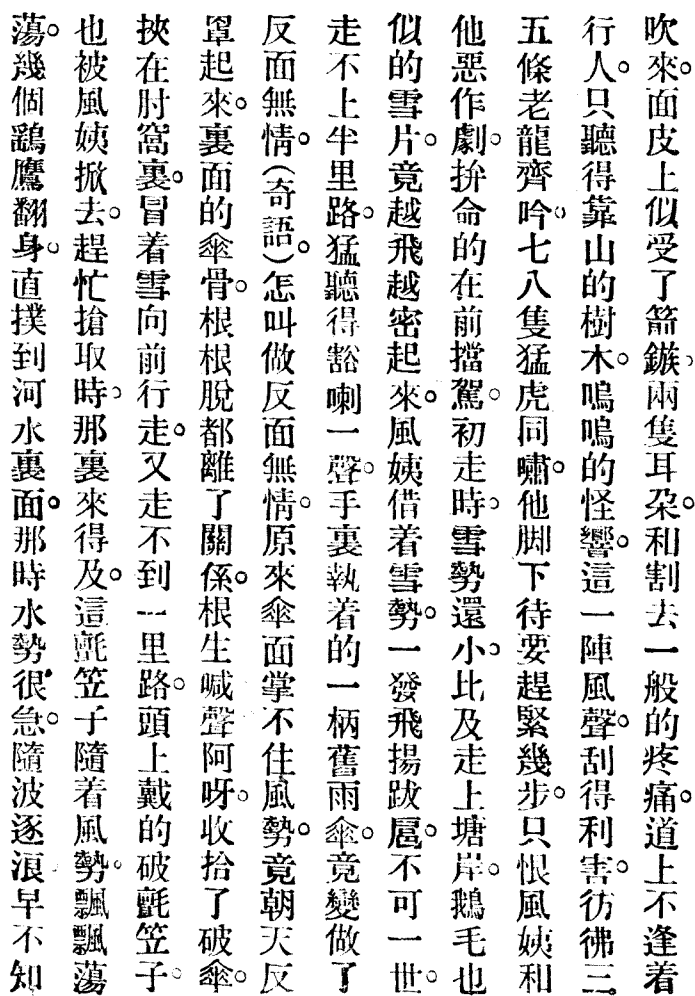 吹來。面皮上似受了箭鏃。兩隻耳朶。和割去一般的疼痛。道上不逢着
行人。只聽得靠山的樹木。嗚嗚的怪響。這一陣風聲。刮得利害。彷彿三
五條老龍齊吟。七八隻猛虎同嘯。他脚下待要趕緊幾步。只恨風姨和
他惡作劇。拚命的在前擋駕。初走時。雪勢還小。比及走上塘岸。鵝毛也
似的雪片。竟越飛越密起來。風姨借着雪勢。一發飛揚跋扈。不可一世。
走不上半里路。猛聽得豁喇一聲。手裏執着的一柄舊雨傘。竟變做了
反面無情。(奇語。)怎叫做反面無情。原來傘面掌不住風勢。竟朝天反
罩起來。裏面的傘骨。根根脫都離了關係。根生喊聲阿呀。收拾了破傘。
挾在肘窩裏。冒着雪向前行走。又走不到一里路。頭上戴的破氈笠子。
也被風姨掀去。趕忙搶取時。那裏來得及。這氈笠子隨着風勢。飄飄蕩
蕩。幾個鷂鷹翻身。直撲到河水裏面。那時水勢很急。隨波逐浪。早不知